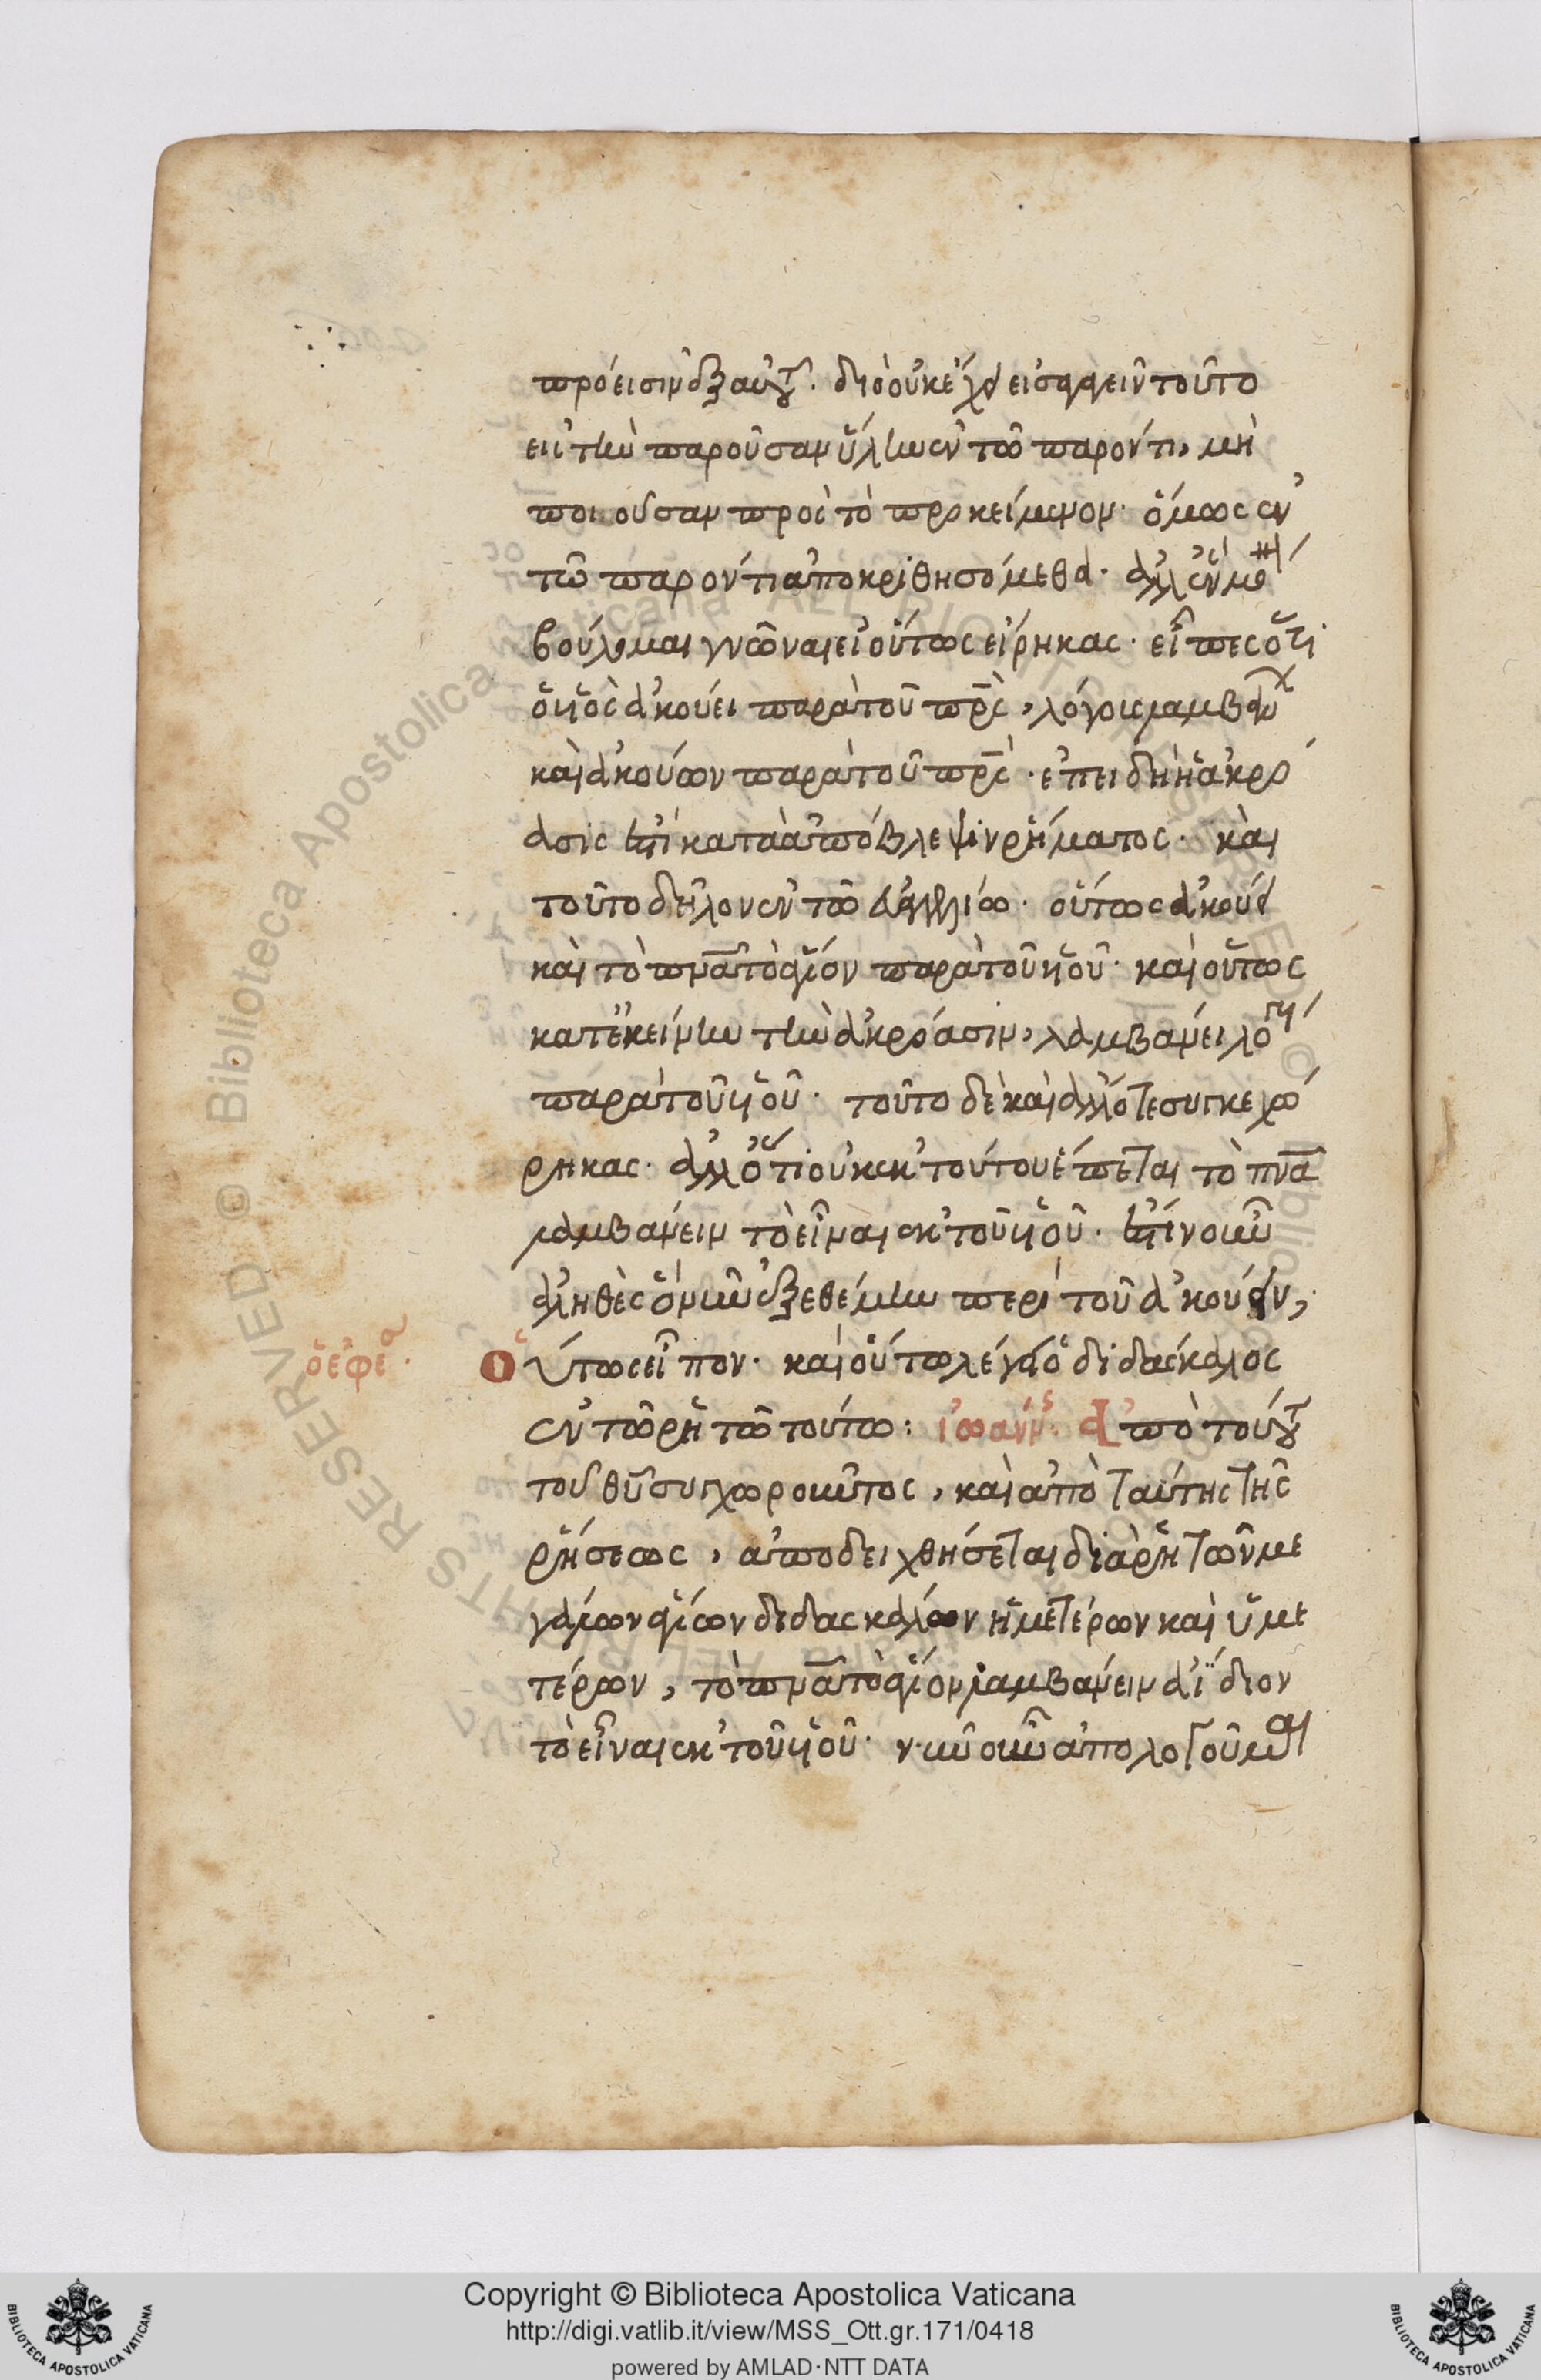 πρόεισιν ἐξ αὐτοῦ. διὸ οὐκ ἔχει εἰσαγαγεῖν τοῦτο
εἰς τὴν παροῦσαν ὕλην ἐν τῷ παρόντι, μὴ
ποιοῦσαν πρὸς τὸ προκείμενον. ὅμως ἐν
τῷ παρόντι ἀποκριθησόμεθα. ἀλλ' ἓν μό
βούλομαι γνῶναι εἰ οὕτως εἴρηκας. εἶπες ὅτι
ὁ υἱὸς ἀκούει παρὰ τοῦ πρς, λόγοις λαμβάν
καὶ ἀκούων παρὰ τοῦ πρς. ἐπειδὴ ἡ ἀκρό
ασις ἐστὶ κατὰ ἀπόβλεψιν ῥήματος. καὶ
τοῦτο δῆλον ἐν τῷ οὕτως ἀκούει
καὶ τὸ πνα τὸ ἅγιον παρὰ τοῦ υἱοῦ. καὶ οὕτως
κατ' ἐκείνην τὴν ἀκρόασιν, λαμβάνει λό
παρὰ τοῦ υἱοῦ. τοῦτο δὲ καὶ ἄλλοτε συγκεχώ
ρηκας. ἀλλ' ὅτι οὐκ ἐκ τούτου ἕπεται τὸ πνα
λαμβάνειν τὸ εἶναι ἐκ τοῦ υἱοῦ. ἐστὶν οὖν
ἀληθὲς ὃ νῦν ἐξεθέμην περὶ τοῦ ἀκούειν,
ὁ ἐφέ.
Οὕτως εἶπον. καὶ οὕτω λέγει ὁ διδάσκαλος
ἐν τῷ ῥητῷ τούτῳ: ἰωάνν. Ἀπὸ τούτου
τοῦ θυ συγχωροῦντος, καὶ ἀπὸ ταύτης τῆς
ῥήσεως, ἀποδειχθήσεται διὰ ῥητῶν με
γάλων ἁγίων διδασκάλων ἡμετέρων καὶ ὑμε
τέρων, τὸ πνα τὸ ἅγιον λαμβάνειν ἀΐδιον
τὸ εἶναι ἐκ τοῦ υἱοῦ. νῦν οὖν ἀπολογοῦμαι
Copyright © Biblioteca Apostolica Vaticana
http://digi.vatlib.it/view/MSS_Ott.gr.171/0418
powered by AMLAD·NTT DATA